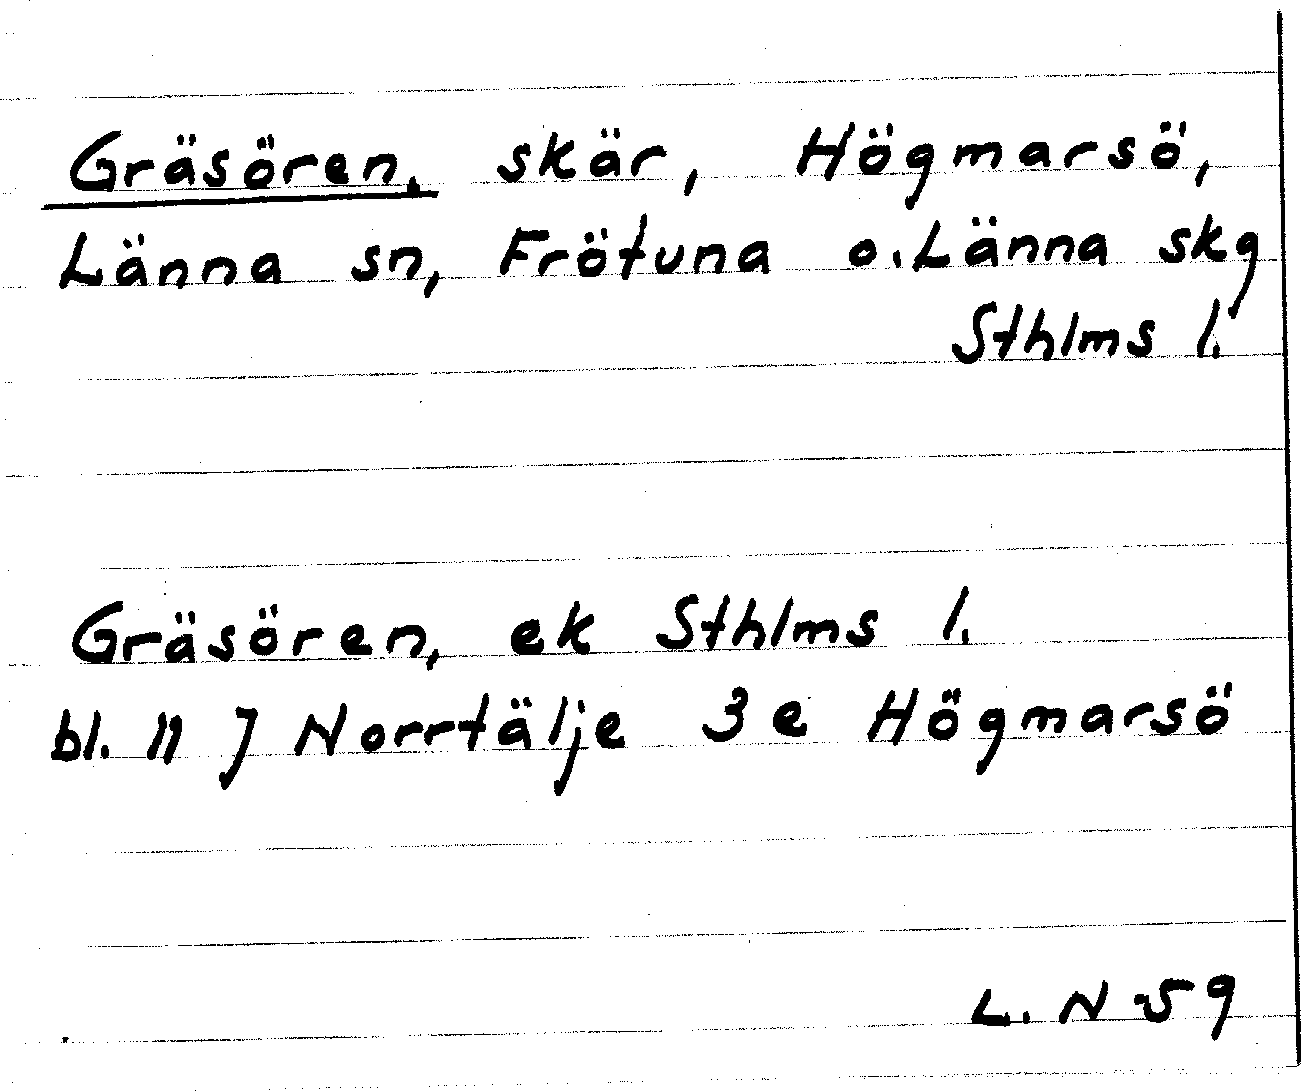 Gräsören. skär, Högmarsö,
Länna sn, Frötuna o. Länna skg
Sthlms l.
Gräsören, ek Sthlms l.
bl. 11 J Norrtälje 3e Högmarsö
L. N-59